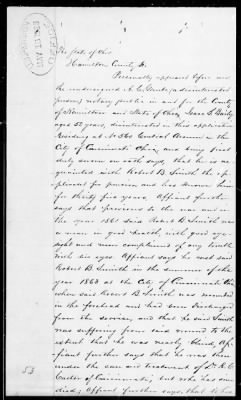 The State of Ohio
Hamilton County, ss.
Personally appeared before me
the undersigned A. C. (a disinterested
person) notary public in and for the County
of Hamilton and State of Ohio, Isaac G.
aged 52 years, disinterested in this application
Residing at No 360 Central Avenue in the
City of Cincinnati Ohio, and being first
duly sworn on oath says, that he is ac-
quainted with Robert B. Smith the ap-
plicant for pension and has known him
for thirty five years. Affiant further
says that previous to the war and in
the year 1861 said Robert B. Smith was
a man in good health, with good eye-
sight and never complained of any trouble
with his eyes. Affiant says he next saw
Robert B. Smith in the summer of the
year 1863 at the City of Cincinnati O.
when said Robert B. Smith was wounded
in the forehead and had been discharged
from the service, and that he said Smith
was suffering from said wound to the
extent that he was nearly blind, Af-
fiant further says that he was then
under the care and treatment of Dr.
Carter of Cincinnati, but who has since
died; Affiant further says, that to his
53